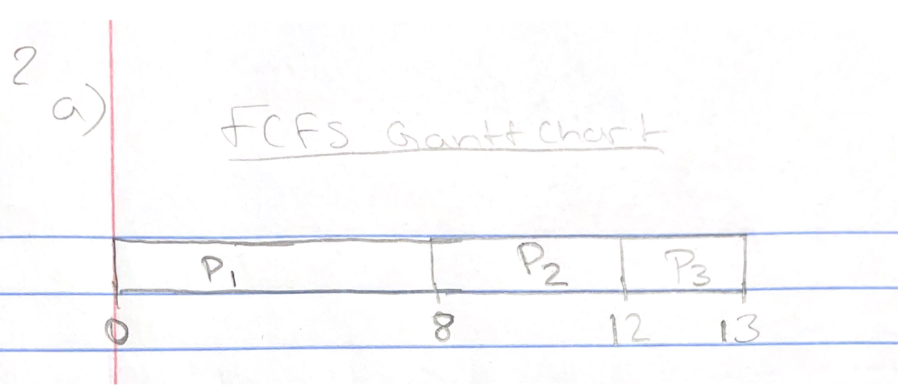 2
a)
FCFS Gantt Chart
P1 P2 P3
0 8 12 13